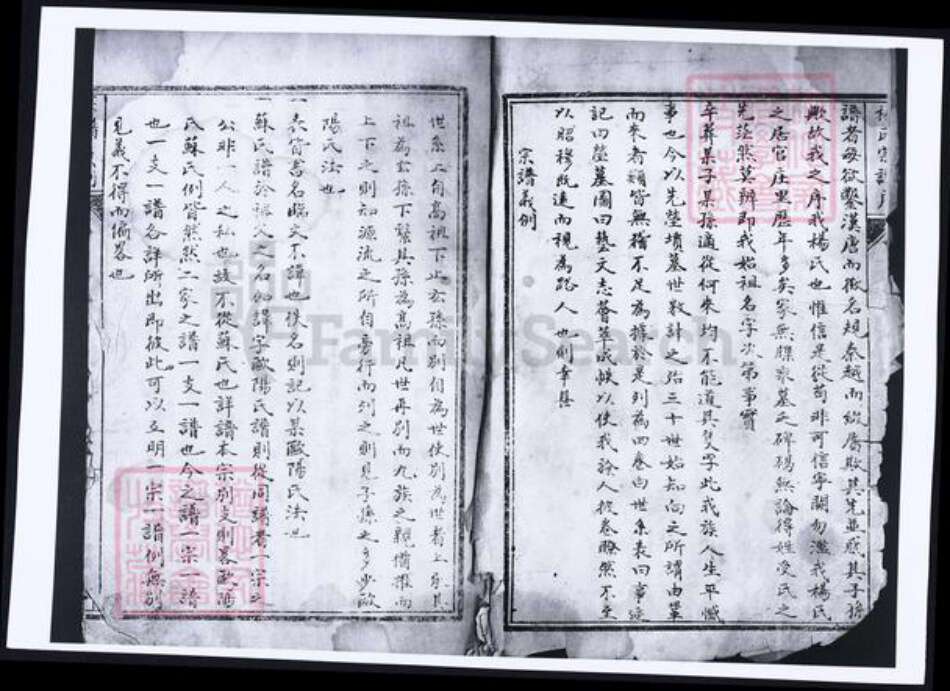 譜者每欲鑿漢唐而徵名規秦越而綴屬欺其先並惑其子孫
歟故我之序我楊氏也惟信是從苟非可信寧闕勿濫我楊氏
之居官庄里歷年多矣家無牒乘墓乏碑碣無論得姓受氏之
先茫然莫辨即我始祖名字次第事實
卒葬某子某孫適從何來均不能道其隻字此我族人生平憾
事也今以先塋墳墓世數計之殆三十世始知向之所謂由單
而來者類皆無稽不足為據於是列為四卷曰世系表曰事迹
記曰塋墓圖曰藝文志薈萃成帙以使我族人披卷瞭然不至
以昭穆既遠而視為路人也則幸甚
宗譜義例
世系上自高祖下止玄孫而別自為世使別為世者上承其
祖為玄孫下繫其孫為高祖凡世再別而九族之親備推而
上下之則知源流之所自旁行而列之則見子孫之多少歐
陽氏法也
一表皆書名臨文不諱也佚名則記以某歐陽氏法也
一蘇氏譜於諸父之名加諱字歐陽氏譜則從同譜者一宗之
公非一人之私也故不從蘇氏也詳譜本宗別支則畧歐陽
氏蘇氏例皆然然二家之譜一支一譜也今之譜一宗一譜
也一支一譜各詳所出即彼此可以互明一宗一譜例無別
見義不得而偏畧也
FamilySearch